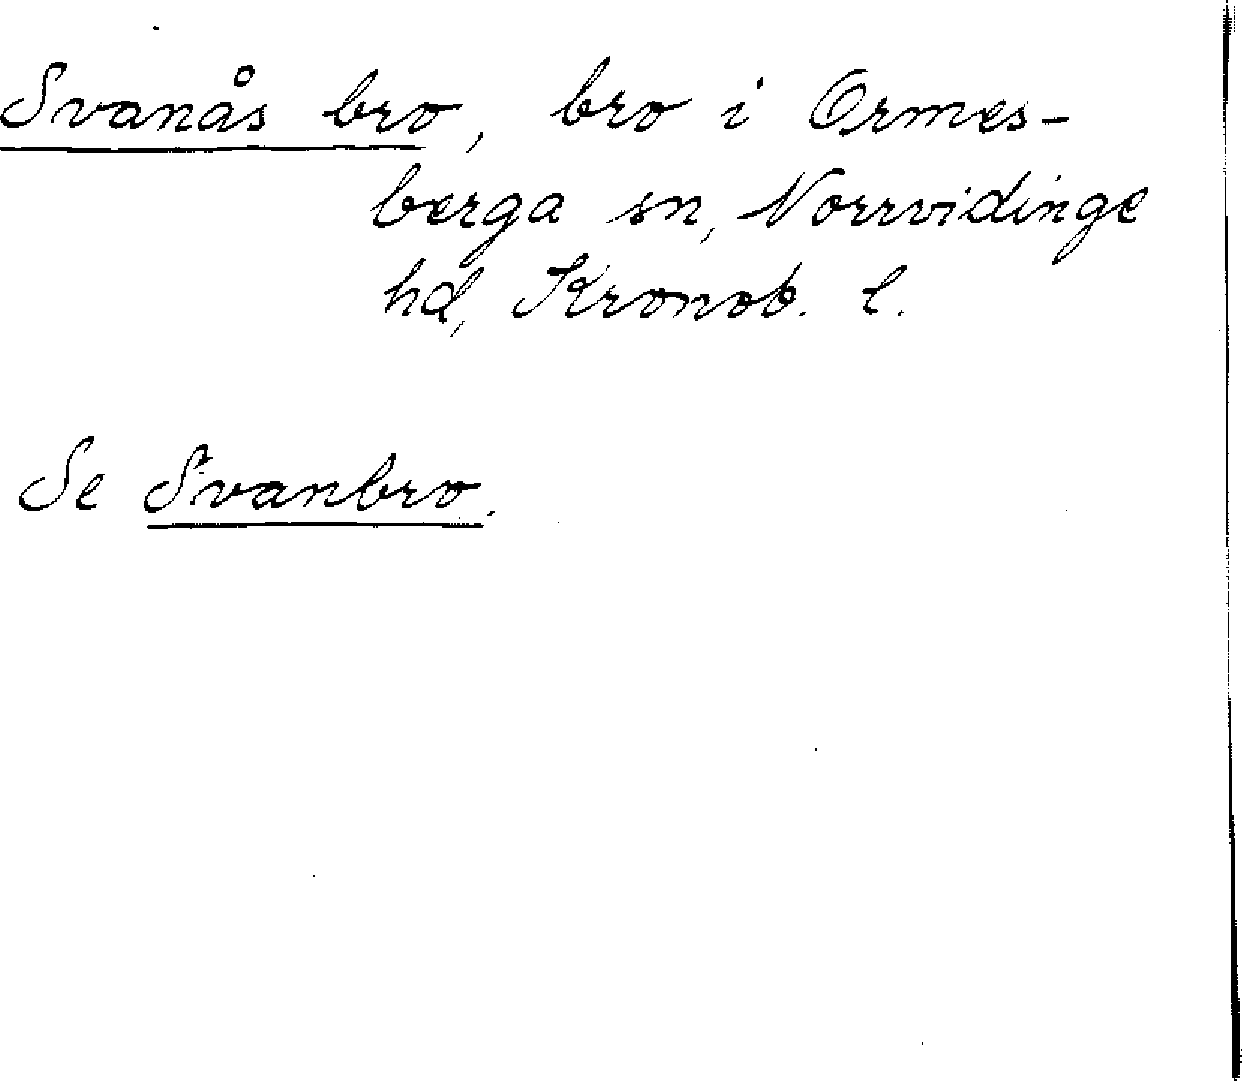 Svanås bro, bro i Ormes-
berga sn, Norrvidinge
hd, Kronob. l.
Se Svanbro.